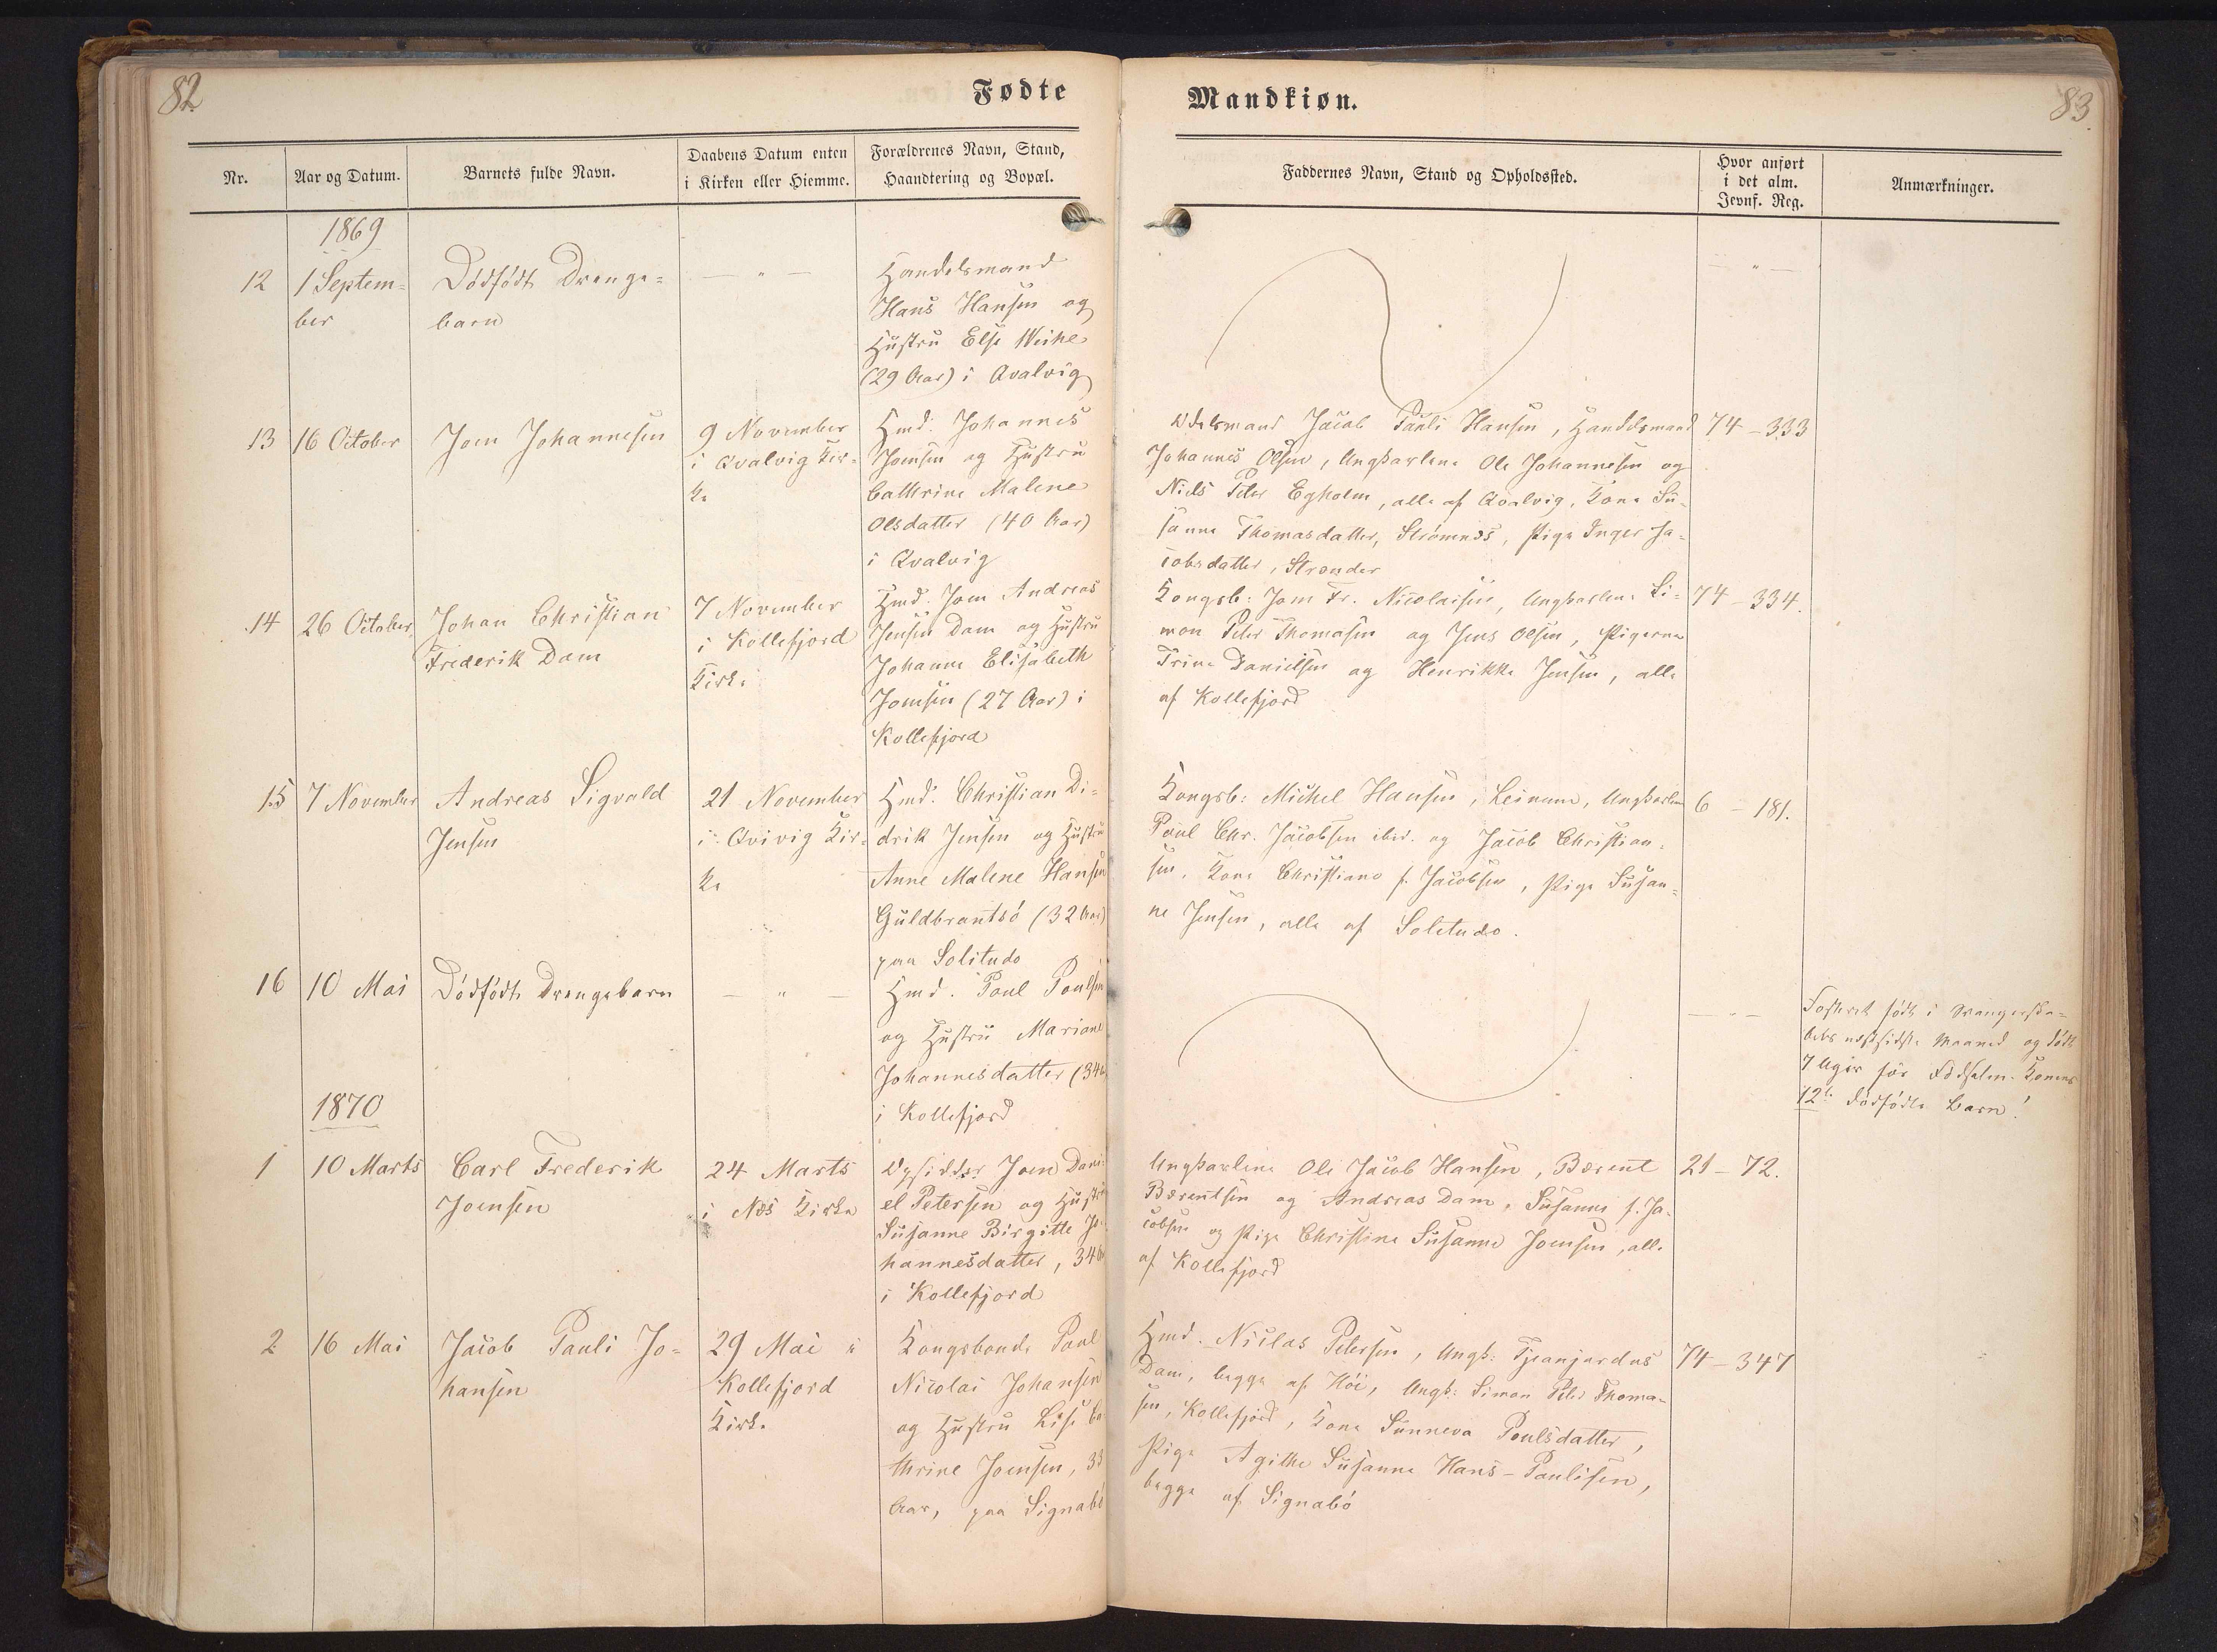 82
Fødte
Nr.
Aar og Datum.
Barnets fulde Navn.
Daabens Datum enten
i Kirken eller Hiemme.
Forældrenes Navn, Stand,
Haandtering og Bopæl.
1869
12
1 Septem-
ber
Dødfødt Drenge-
barn
— " —
Handelsmand
Hans Hansen og
Hustru Else Weihe
(29 Aar) i Qvalvig
13
16 October
Joen Johannesen
9 November
i Qvalvig Kir-
ke
Hmd. Johannes
Joensen og Hustru
Cathrine Malene
Olsdatter (40 Aar)
i Qvalvig
14
26 October
Johan Christian
Frederik Dam
7 November
i Kollefjord
Kirke
Hmd. Joen Andreas
Jensen Dam og Hustru
Johanne Elisabeth
Joensen (27 Aar) i
Kollefjord
15
7 November
Andreas Sigvald
Jensen
21 November
i Qvivig Kir-
ke
Hmd. Christian Di-
drik Jensen og Hustru
Anne Malene Hansen
Guldbrantsó (32 Aar)
paa Solitude
16
10 Mai
Dødfødt Drengebarn
— " —
Hmd. Poul Poulsen
og Hustru Mariane
Johannesdatter (34
i Kollefjord
1870
1
10 Marts
Carl Frederik
Joensen
24 Marts
i Nœs Kirke
Opsidder Joen Dani-
el Petersen og Hustru
Susanne Birgitte Jo-
hannesdatter, 34
i Kollefjord
2
16 Mai
Jacob Pauli Jo-
hansen
29 Mai i
Kollefjord
Kirke
Kongsbonde Poul
Nicolai Johansen
og Hustru Lise Ca-
thrine Joensen, 33
Aar, paa Signabø
Mandkiøn.
83.
Faddernes Navn, Stand og Opholdssted.
Hvor anført
i det alm.
Jevnf. Reg.
Anmærkninger.
— " —
Odelsmand Jacob Pauli Hansen, Handelsmand
Johannes Olsen, Ungkarlene Ole Johannesen og
Niels Peter Egholm, alle af Qvalvig, Kone Su-
sanne Thomasdatter, Strømnœs, Pige Inger Ja-
cobsdatter, Strænder
74 – 333
Kongsb: Joen Fr. Nicolaisen, Ungkarlene Si-
mon Peter Thomasen og Jens Olsen, Pigerne
Trine Danielsen og Henrikke Jensen, alle
af Kollefjord
74 – 334.
Kongsb: Michel Hansen, Leinum, Ungkarlene
Poul Chr. Jacobsen ibid. og Jacob Christian-
sen, Kone Christiane f. Jacobsen, Pige Susan-
ne Jensen, alle af Solitude.
6 – 181.
— " —
Fosteret født i Svangerska-
bets næstsidste Maaned og dødt
7 Uger før Fødselen. Konens
12te dødfødte Barn!
Ungkarlene Ole Jacob Hansen, Bærent
Bærentsen og Andreas Dam, Susanne f. Ja-
cobsen og Pige Christine Susanne Joensen, alle
af Kollefjord
21 – 72.
Hmd. Niclas Petersen, Ungk: Tjeanjardus
Dam, begge af Hói, Ungk: Simon Peter Thoma-
sen, Kollefjord, Kone Sunneva Poulsdatter,
Pige Agithe Susanne Hans-Paulisen,
begge af Signabø
74 – 347